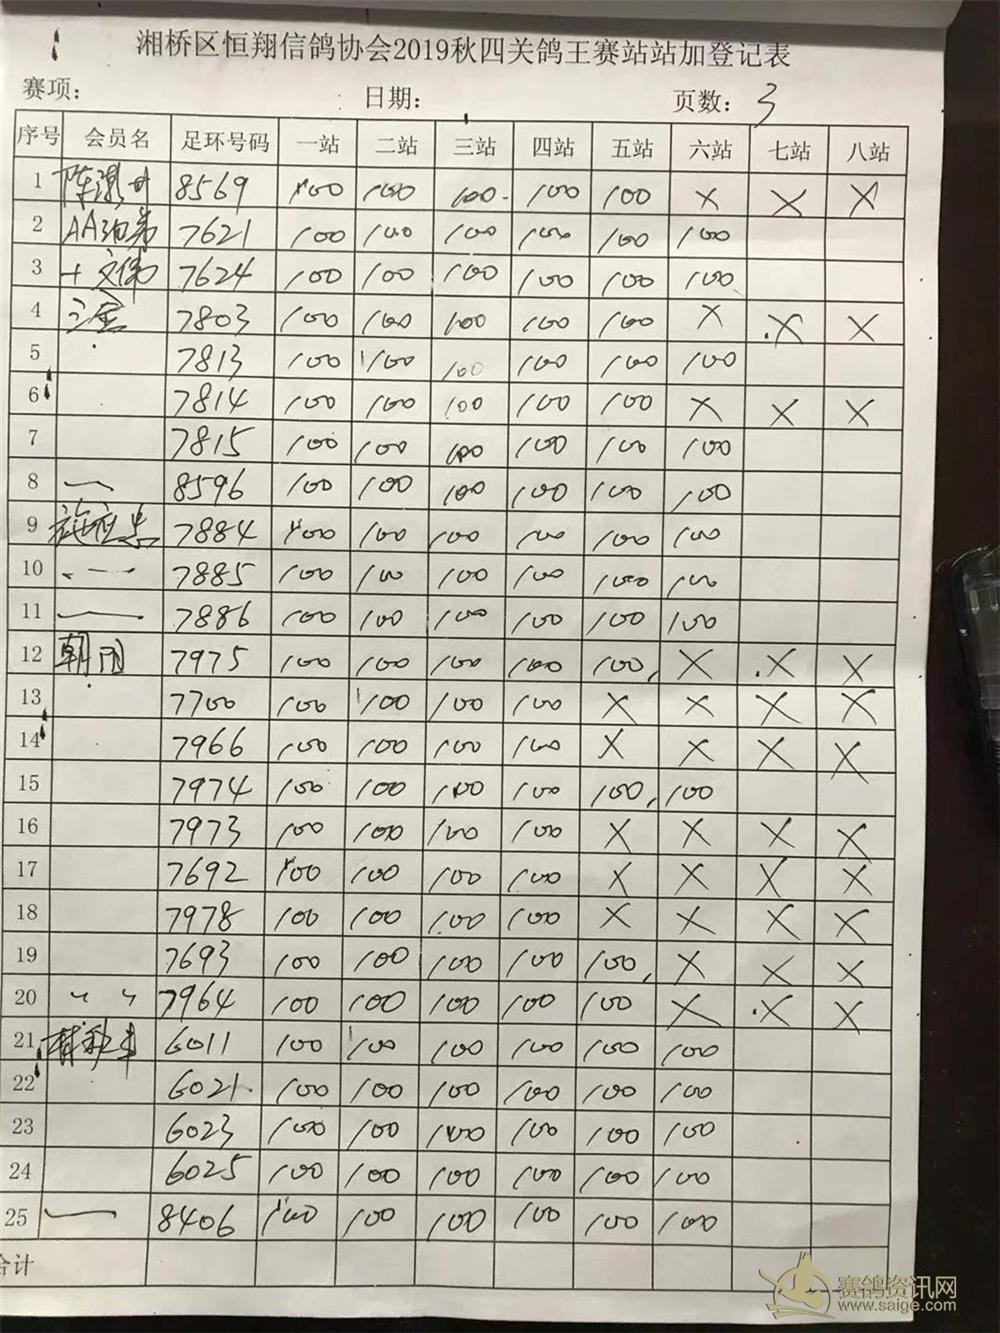 湘桥区恒翔信鸽协会2019秋四关鸽王赛站站加登记表
赛项: 日期: 页数: 3
序号 会员名 足环号码 一站 二站 三站 四站 五站 六站 七站 八站
1 8569 100 100 100 100 100 X X X
2 7621 100 100 100 100 100 100
3 7624 100 100 100 100 100 100
4 7803 100 100 100 100 100 X X X
5 7813 100 100 100 100 100 100
6 7814 100 100 100 100 100 X X X
7 7815 100 100 100 100 100 100
8 8596 100 100 100 100 100 100
9 7884 100 100 100 100 100 100
10 7885 100 100 100 100 100 100
11 7886 100 100 100 100 100 100
12 7975 100 100 100 100 100 X X X
13 7700 100 100 100 100 X X X X
14 7966 100 100 100 100 X X X X
15 7974 100 100 100 100 100 100
16 7973 100 100 100 100 X X X X
17 7692 100 100 100 100 X X X X
18 7978 100 100 100 100 X X X X
19 7693 100 100 100 100 100 X X X
20 〃 7964 100 100 100 100 100 X X X
21 6011 100 100 100 100 100 100
22 6021 100 100 100 100 100 100
23 6023 100 100 100 100 100 100
24 6025 100 100 100 100 100 100
25 8406 100 100 100 100 100 100
合计
赛鸽资讯网
www.saige.com